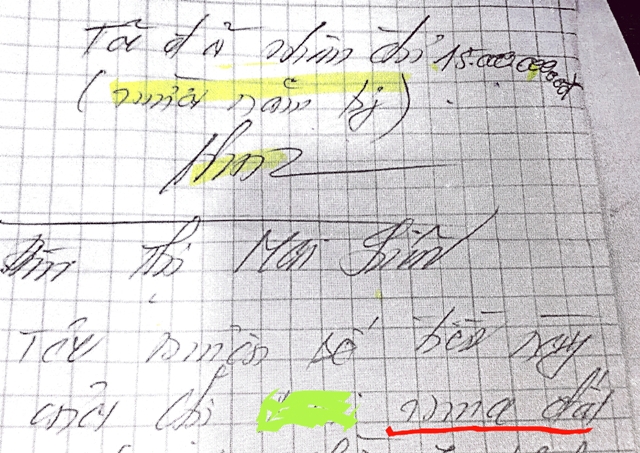 Tôi đã nhận đủ 15.000.000.000đ
(mười năm tỷ)
Thị Mai Hiền
Tôi mượn số tiền này
của chị mua đất